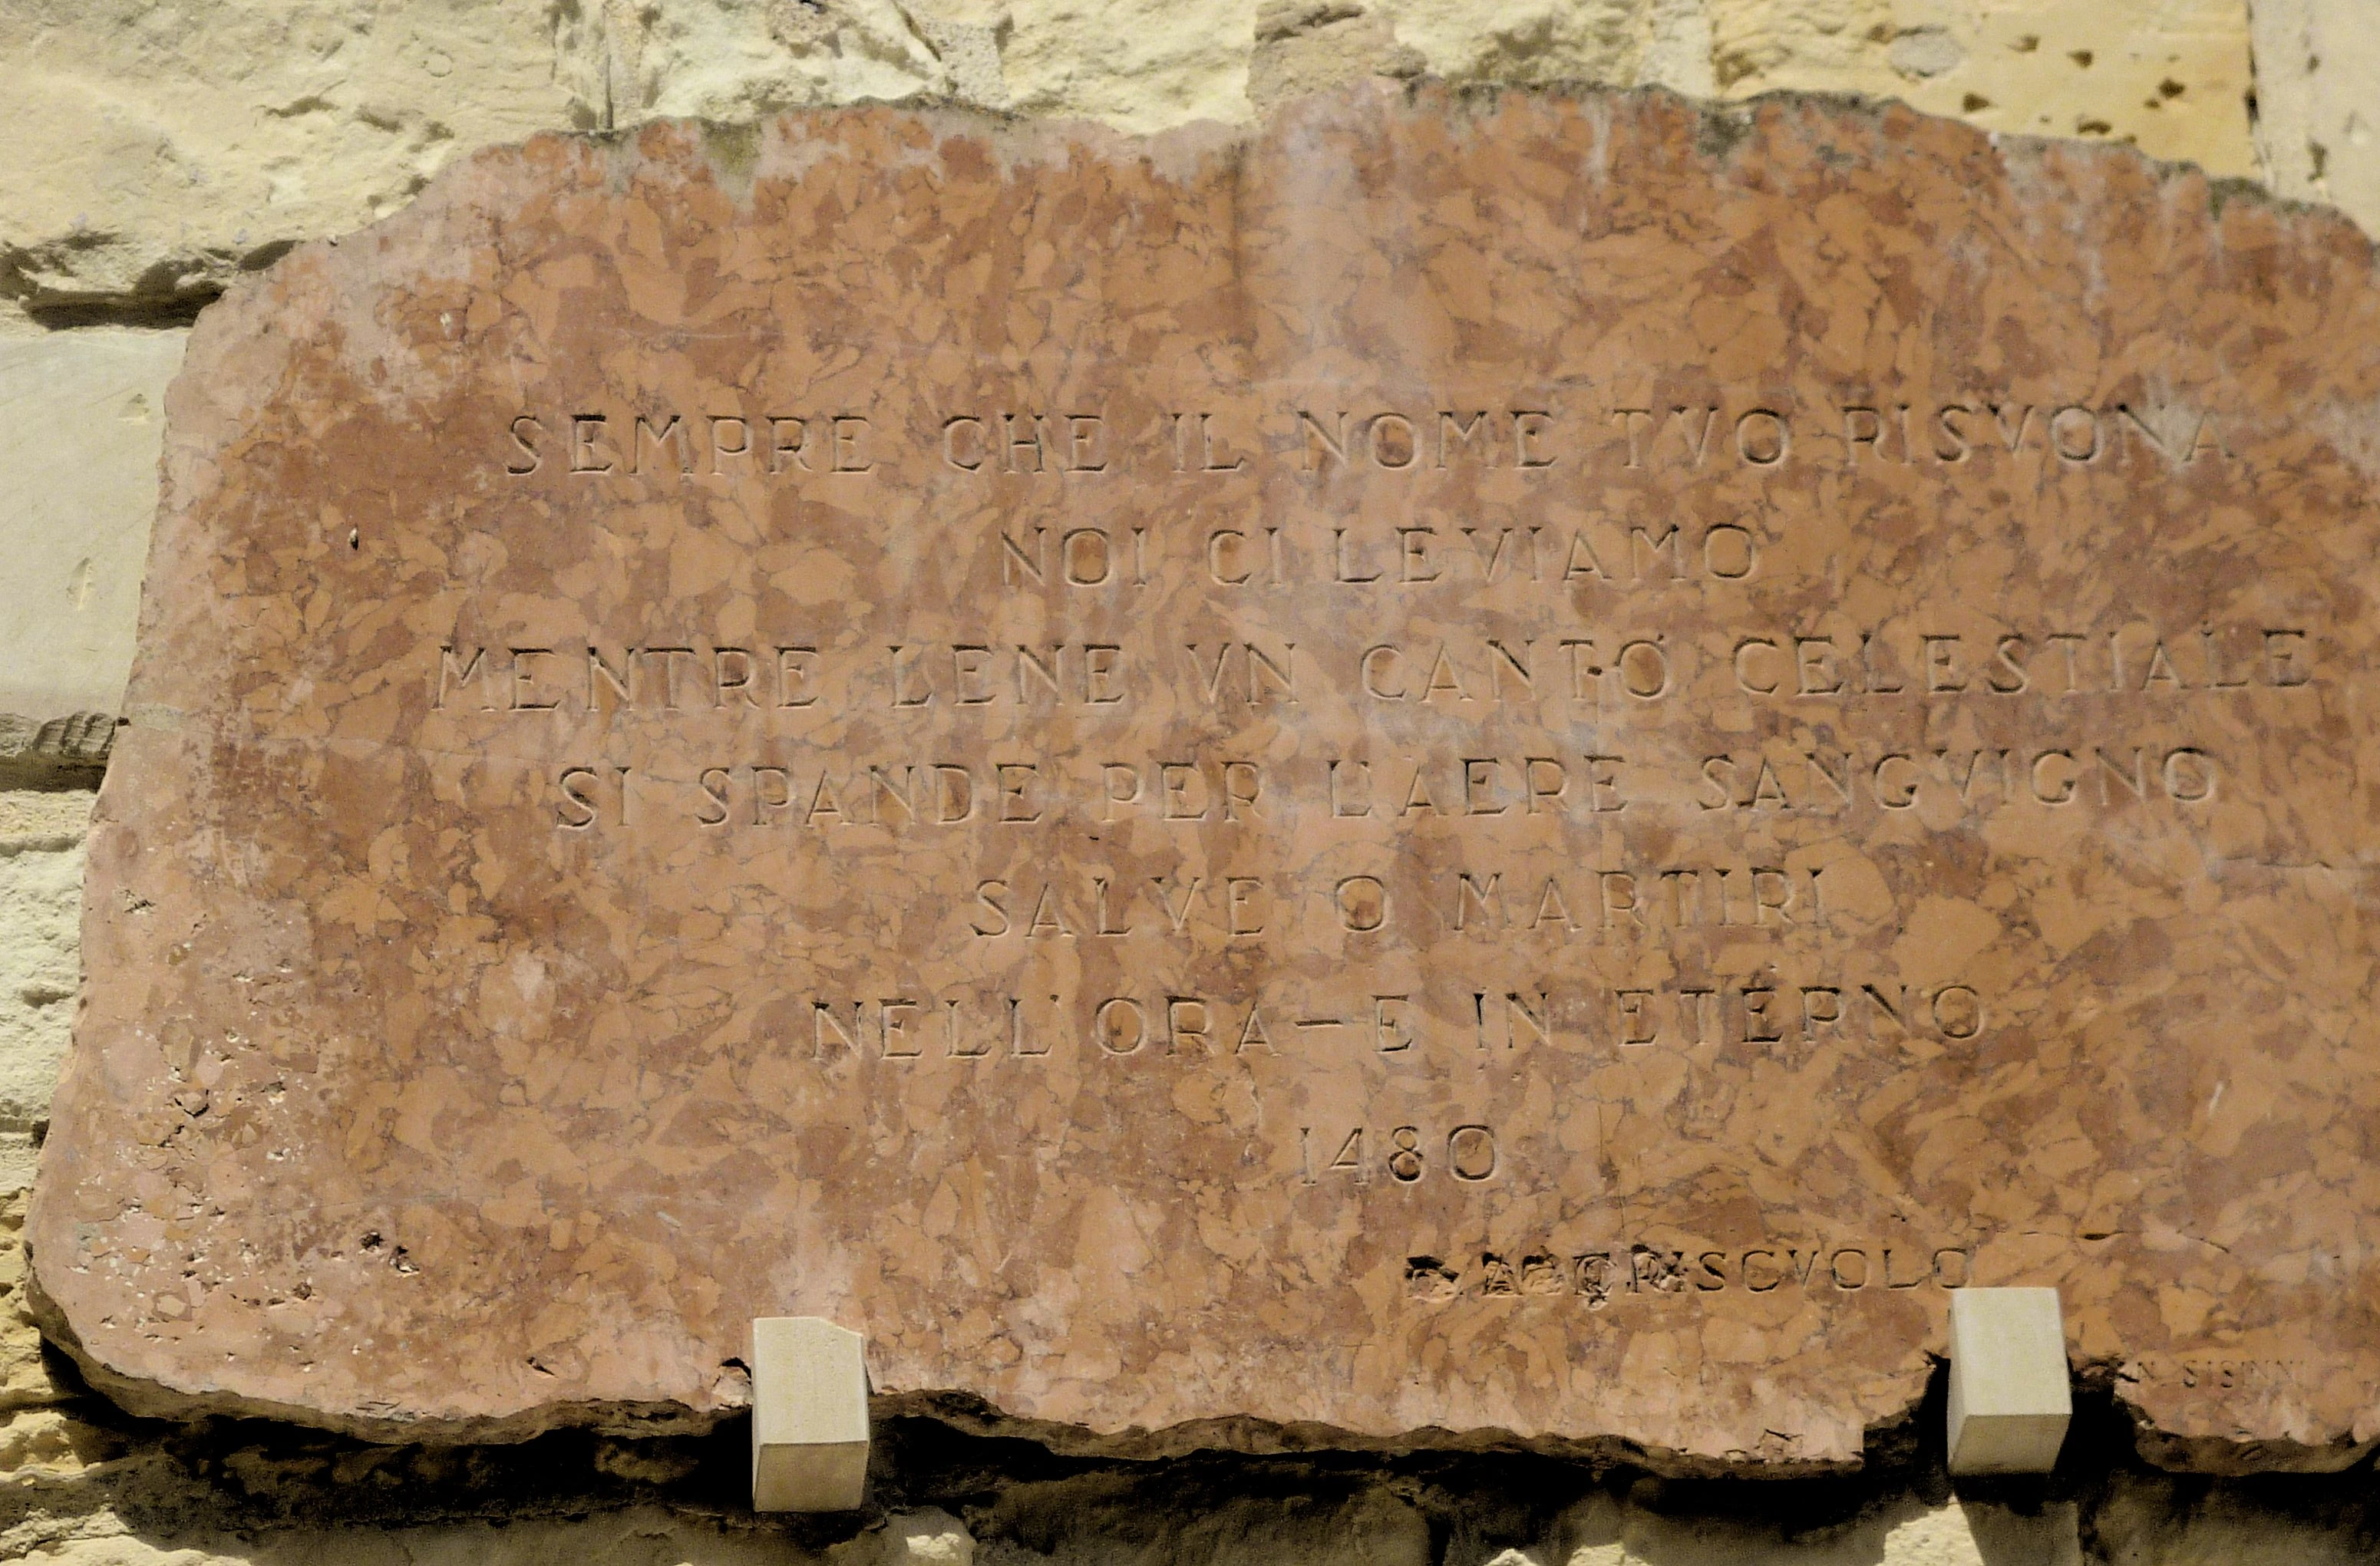 SEMPRE CHE IL NOME TVO RISVONA
NOI CI LEVIAMO
MENTRE LENE VN CANTO CELESTIALE
SI SPANDE PER L'AERE SANGVIGNO
SALVE O MARTIRI
NELL'ORA—E IN ETERNO
1480
N. SISINNI